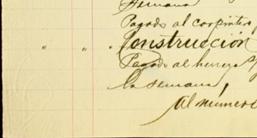 Semana
Pagado al carpintero
" " Construcción
Pagado al herrero
la semana
Al número